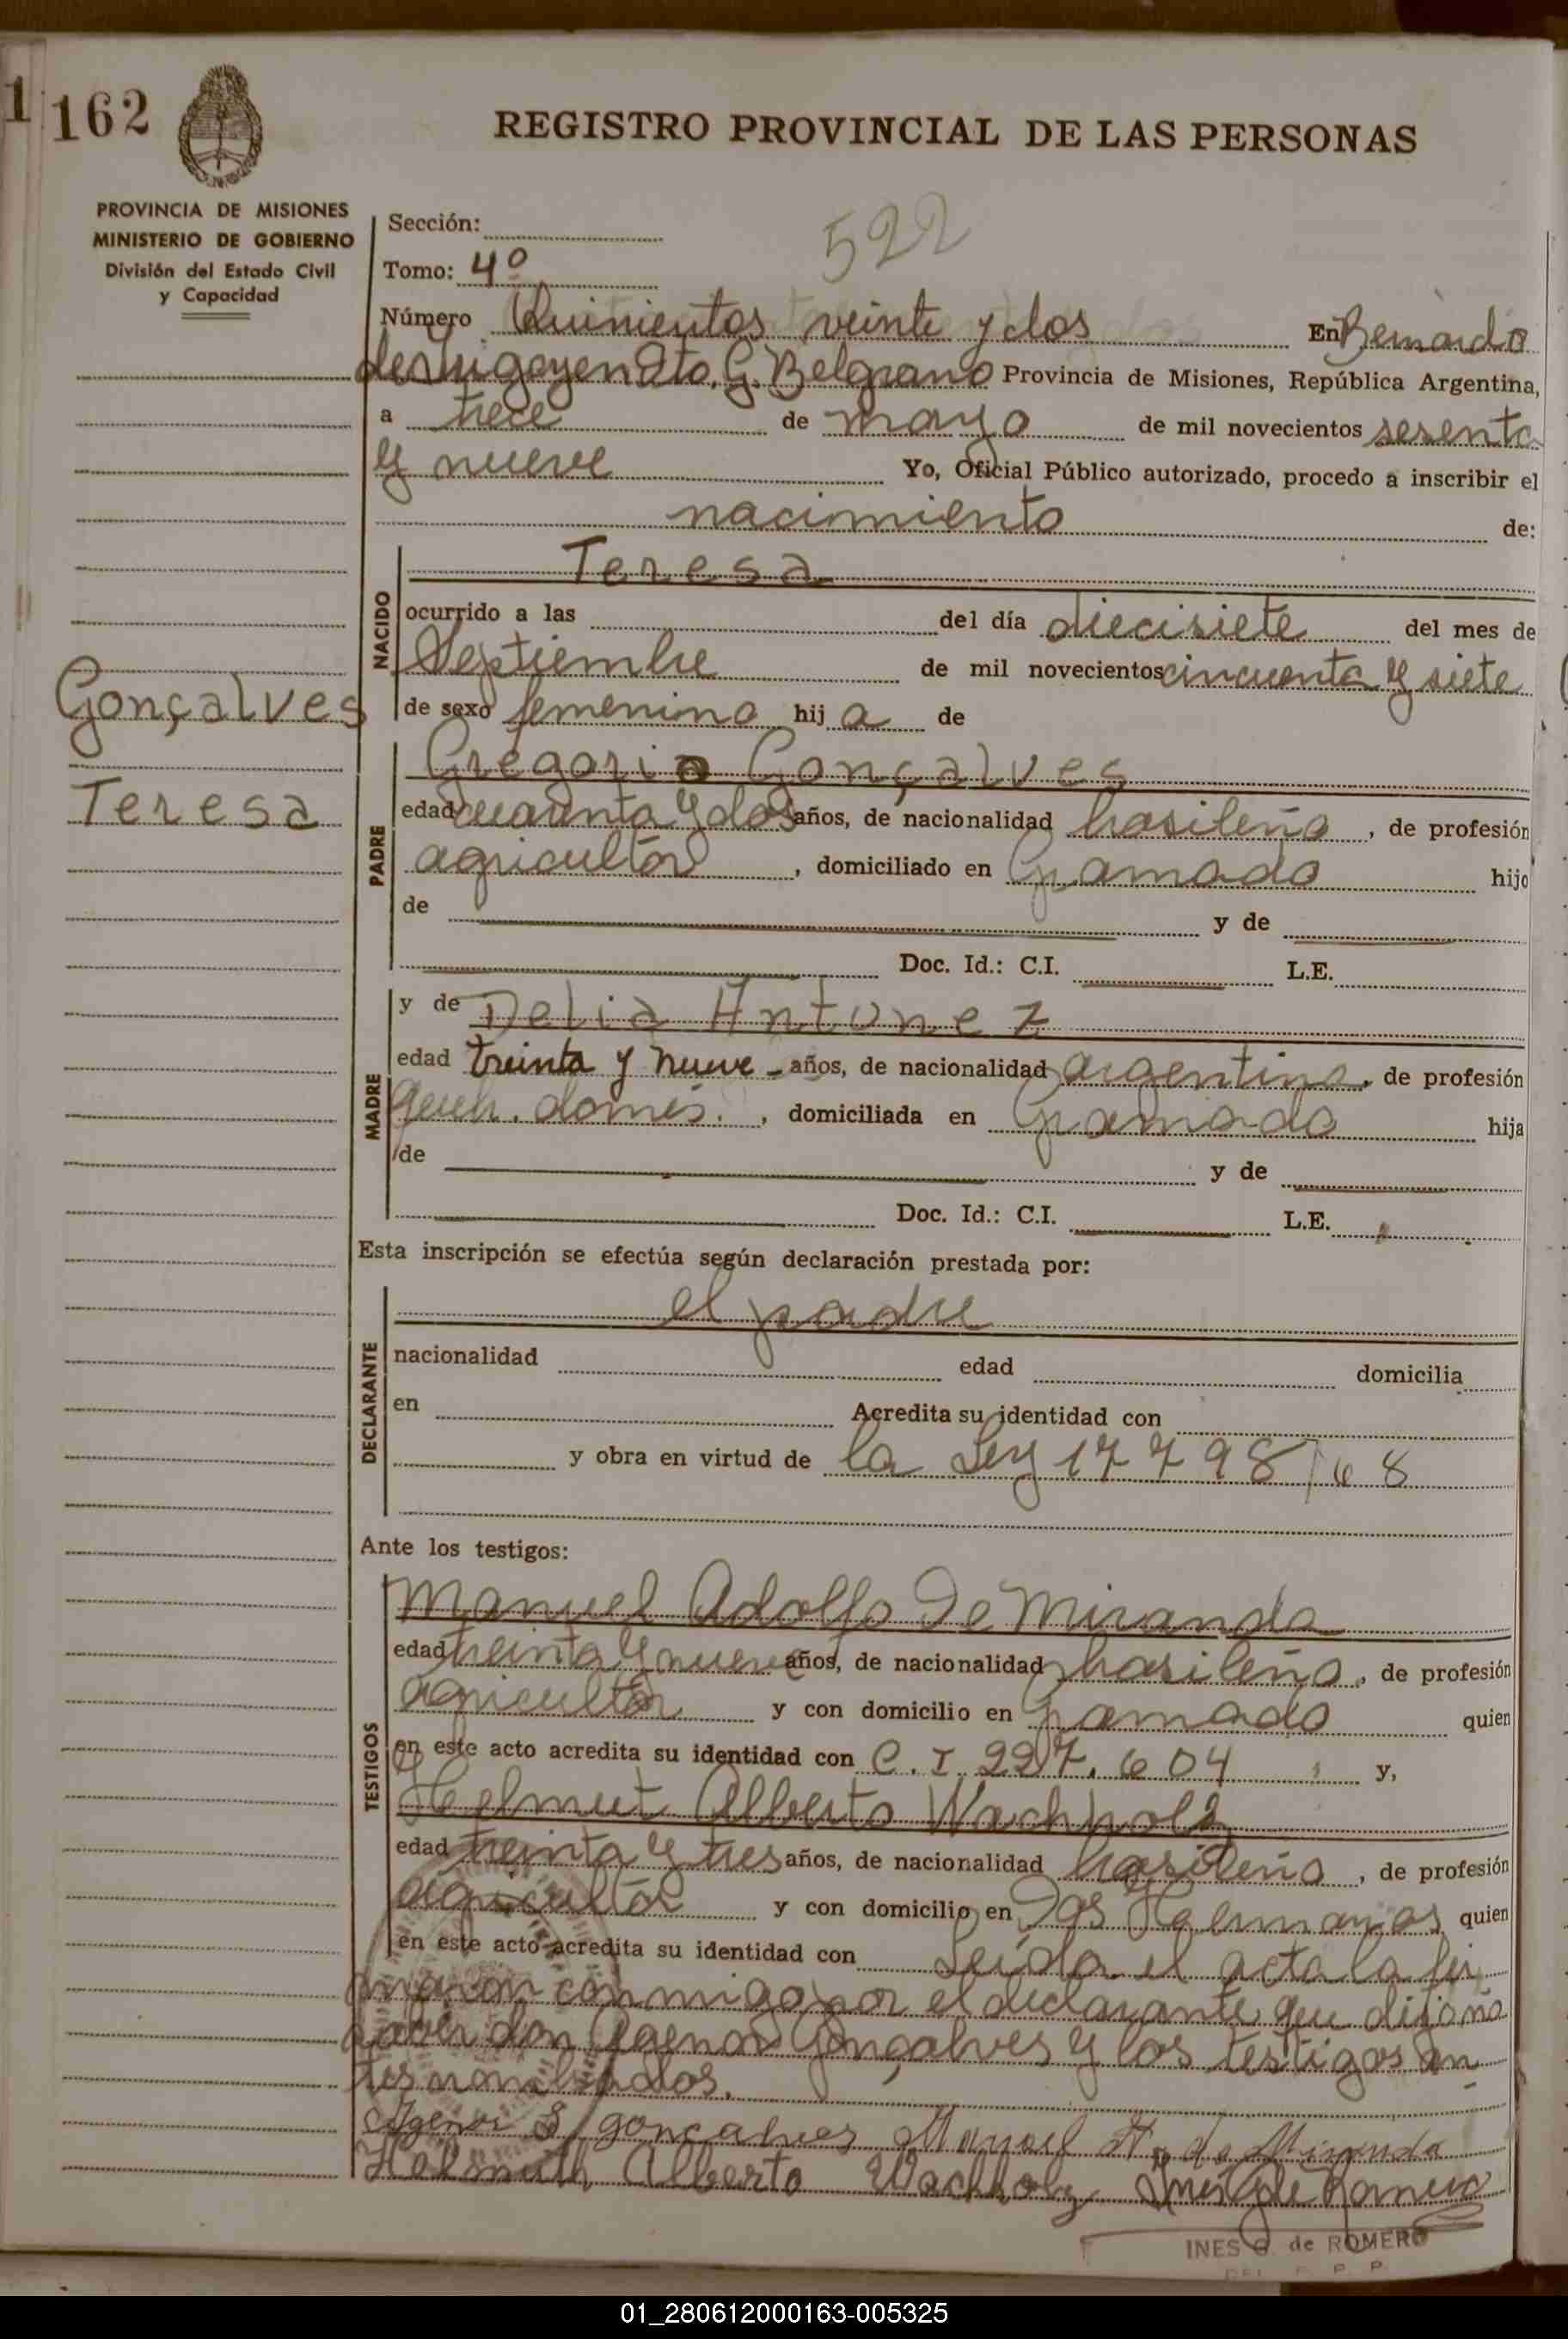 1
162
REGISTRO PROVINCIAL DE LAS PERSONAS
PROVINCIA DE MISIONES
MINISTERIO DE GOBIERNO
División del Estado Civil
y Capacidad
Sección:
522
Tomo: 4º
Número Quinientos veinte y dos En Bernardo
de Irigoyen Dto. G. Belgrano Provincia de Misiones, República Argentina,
a trece de mayo de mil novecientos sesenta
y nueve Yo, Oficial Público autorizado, procedo a inscribir el
nacimiento de:
NACIDO
Teresa
ocurrido a las del día diecisiete del mes de
Septiembre de mil novecientos cincuenta y siete
de sexo femenino hij a de
Gonçalves
Teresa
PADRE
Gregorio Gonçalves
edad cuarenta y dos años, de nacionalidad brasileña, de profesión
agricultor, domiciliado en Gramado hijo
de y de
Doc. Id.: C.I. L.E.
MADRE
y de Delia Antonez
edad treinta y nueve - años, de nacionalidad argentina, de profesión
queh. domés., domiciliada en Gramado hija
de y de
Doc. Id.: C.I. L.E.
Esta inscripción se efectúa según declaración prestada por:
DECLARANTE
el padre
nacionalidad edad domicilia
en Acredita su identidad con
y obra en virtud de la Ley 17798/68
Ante los testigos:
TESTIGOS
Manuel Adolfo De Miranda
edad treinta y nueve años, de nacionalidad brasileña, de profesión
agricultor y con domicilio en Gramado quien
en este acto acredita su identidad con C.I. 227.604 y,
Helmut Alberto Wachholz
edad treinta y tres años, de nacionalidad brasileña, de profesión
agricultor y con domicilio en Dos Hermanos quien
en este acto acredita su identidad con Leída el acta la fir
maron conmigo por el declarante que dijo no
saber don Agenor Gonçalves y los testigos an
tes nombrados.
Agenor S gonçalves Manuel A. de Miranda
Helmuth Alberto Wachholz Inés G de Romero
INES G. de ROMERO
01_280612000163-005325